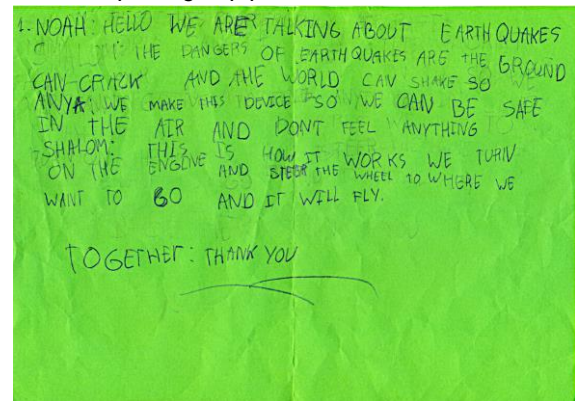 1. NOAH: HELLO WE ARE TALKING ABOUT EARTH QUAKES
THE DANGERS OF EARTH QUAKES ARE THE GROUND
CAN CRACK AND THE WORLD CAN SHAKE SO
ANYA: WE MAKE THIS DEVICE SO WE CAN BE SAFE
IN THE AIR AND DONT FEEL ANYTHING
SHALOM: THIS IS HOW IT WORKS WE TURN
ON THE ENGINE AND STEER THE WHEEL TO WHERE WE
WANT TO GO AND IT WILL FLY.
TOGETHER: THANK YOU